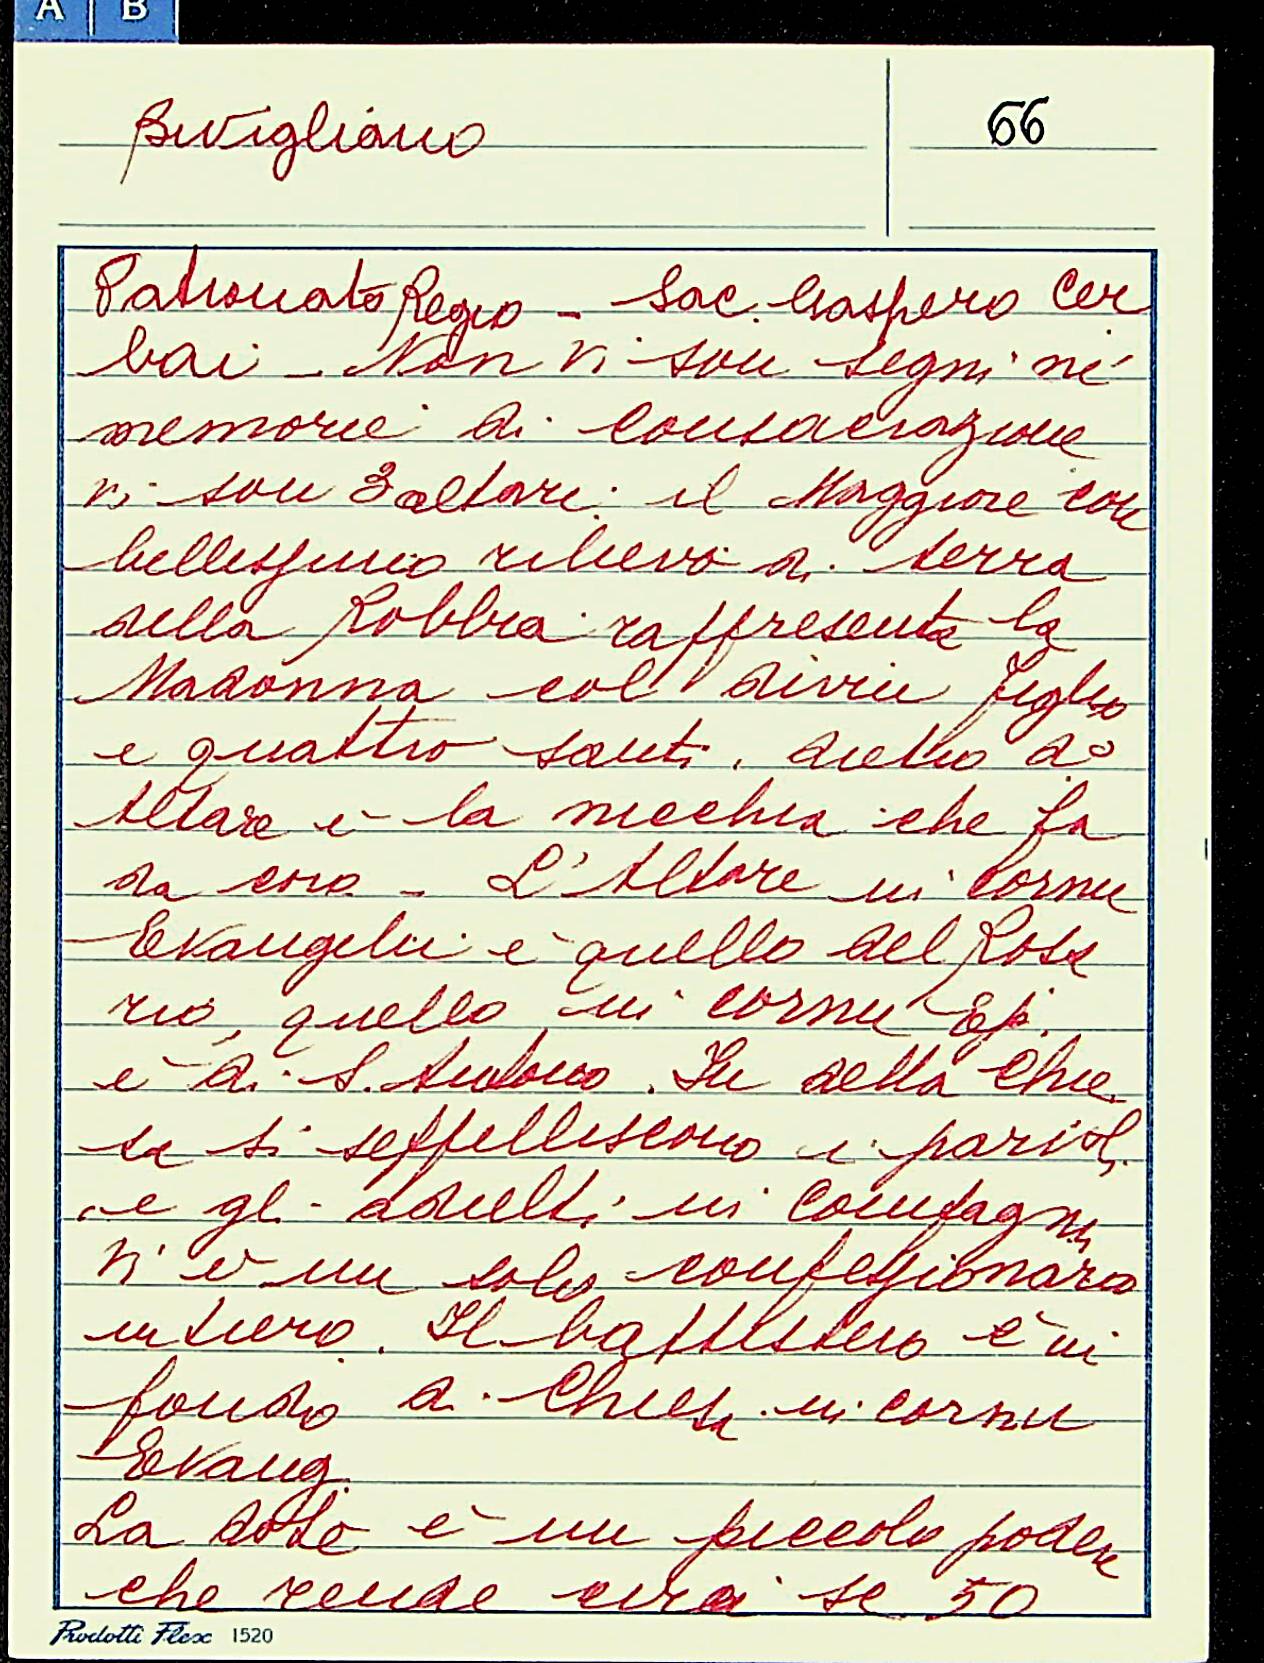 A | B
Buvigliano
66
Patronato Regio - Sac. Gaspero Cer
bai - Non vi son segni né
memorie di consacrazione
vi son 3 altari: il Maggiore con
bellissimo rilievo di terra
della Robbia raffresenta la
Madonna col divin figlio
e quattro santi. dietro do
Altare è la nicchia che fa
da coro - L'Altare in Cornu
Evangelii è quello del Rosa
rio, quello in cornu Ep.
è di S. Antonio. In detta Chie
sa si seppelliscono i parvoli
e gl. adulti in Compagnia
Vi è un solo confessionario
intiero. Il battistero è in
fondo di Chiesa in cornu
Evang.
La dote è un piccolo podere
che rende circa sc 50
Prodotti Flex 1520